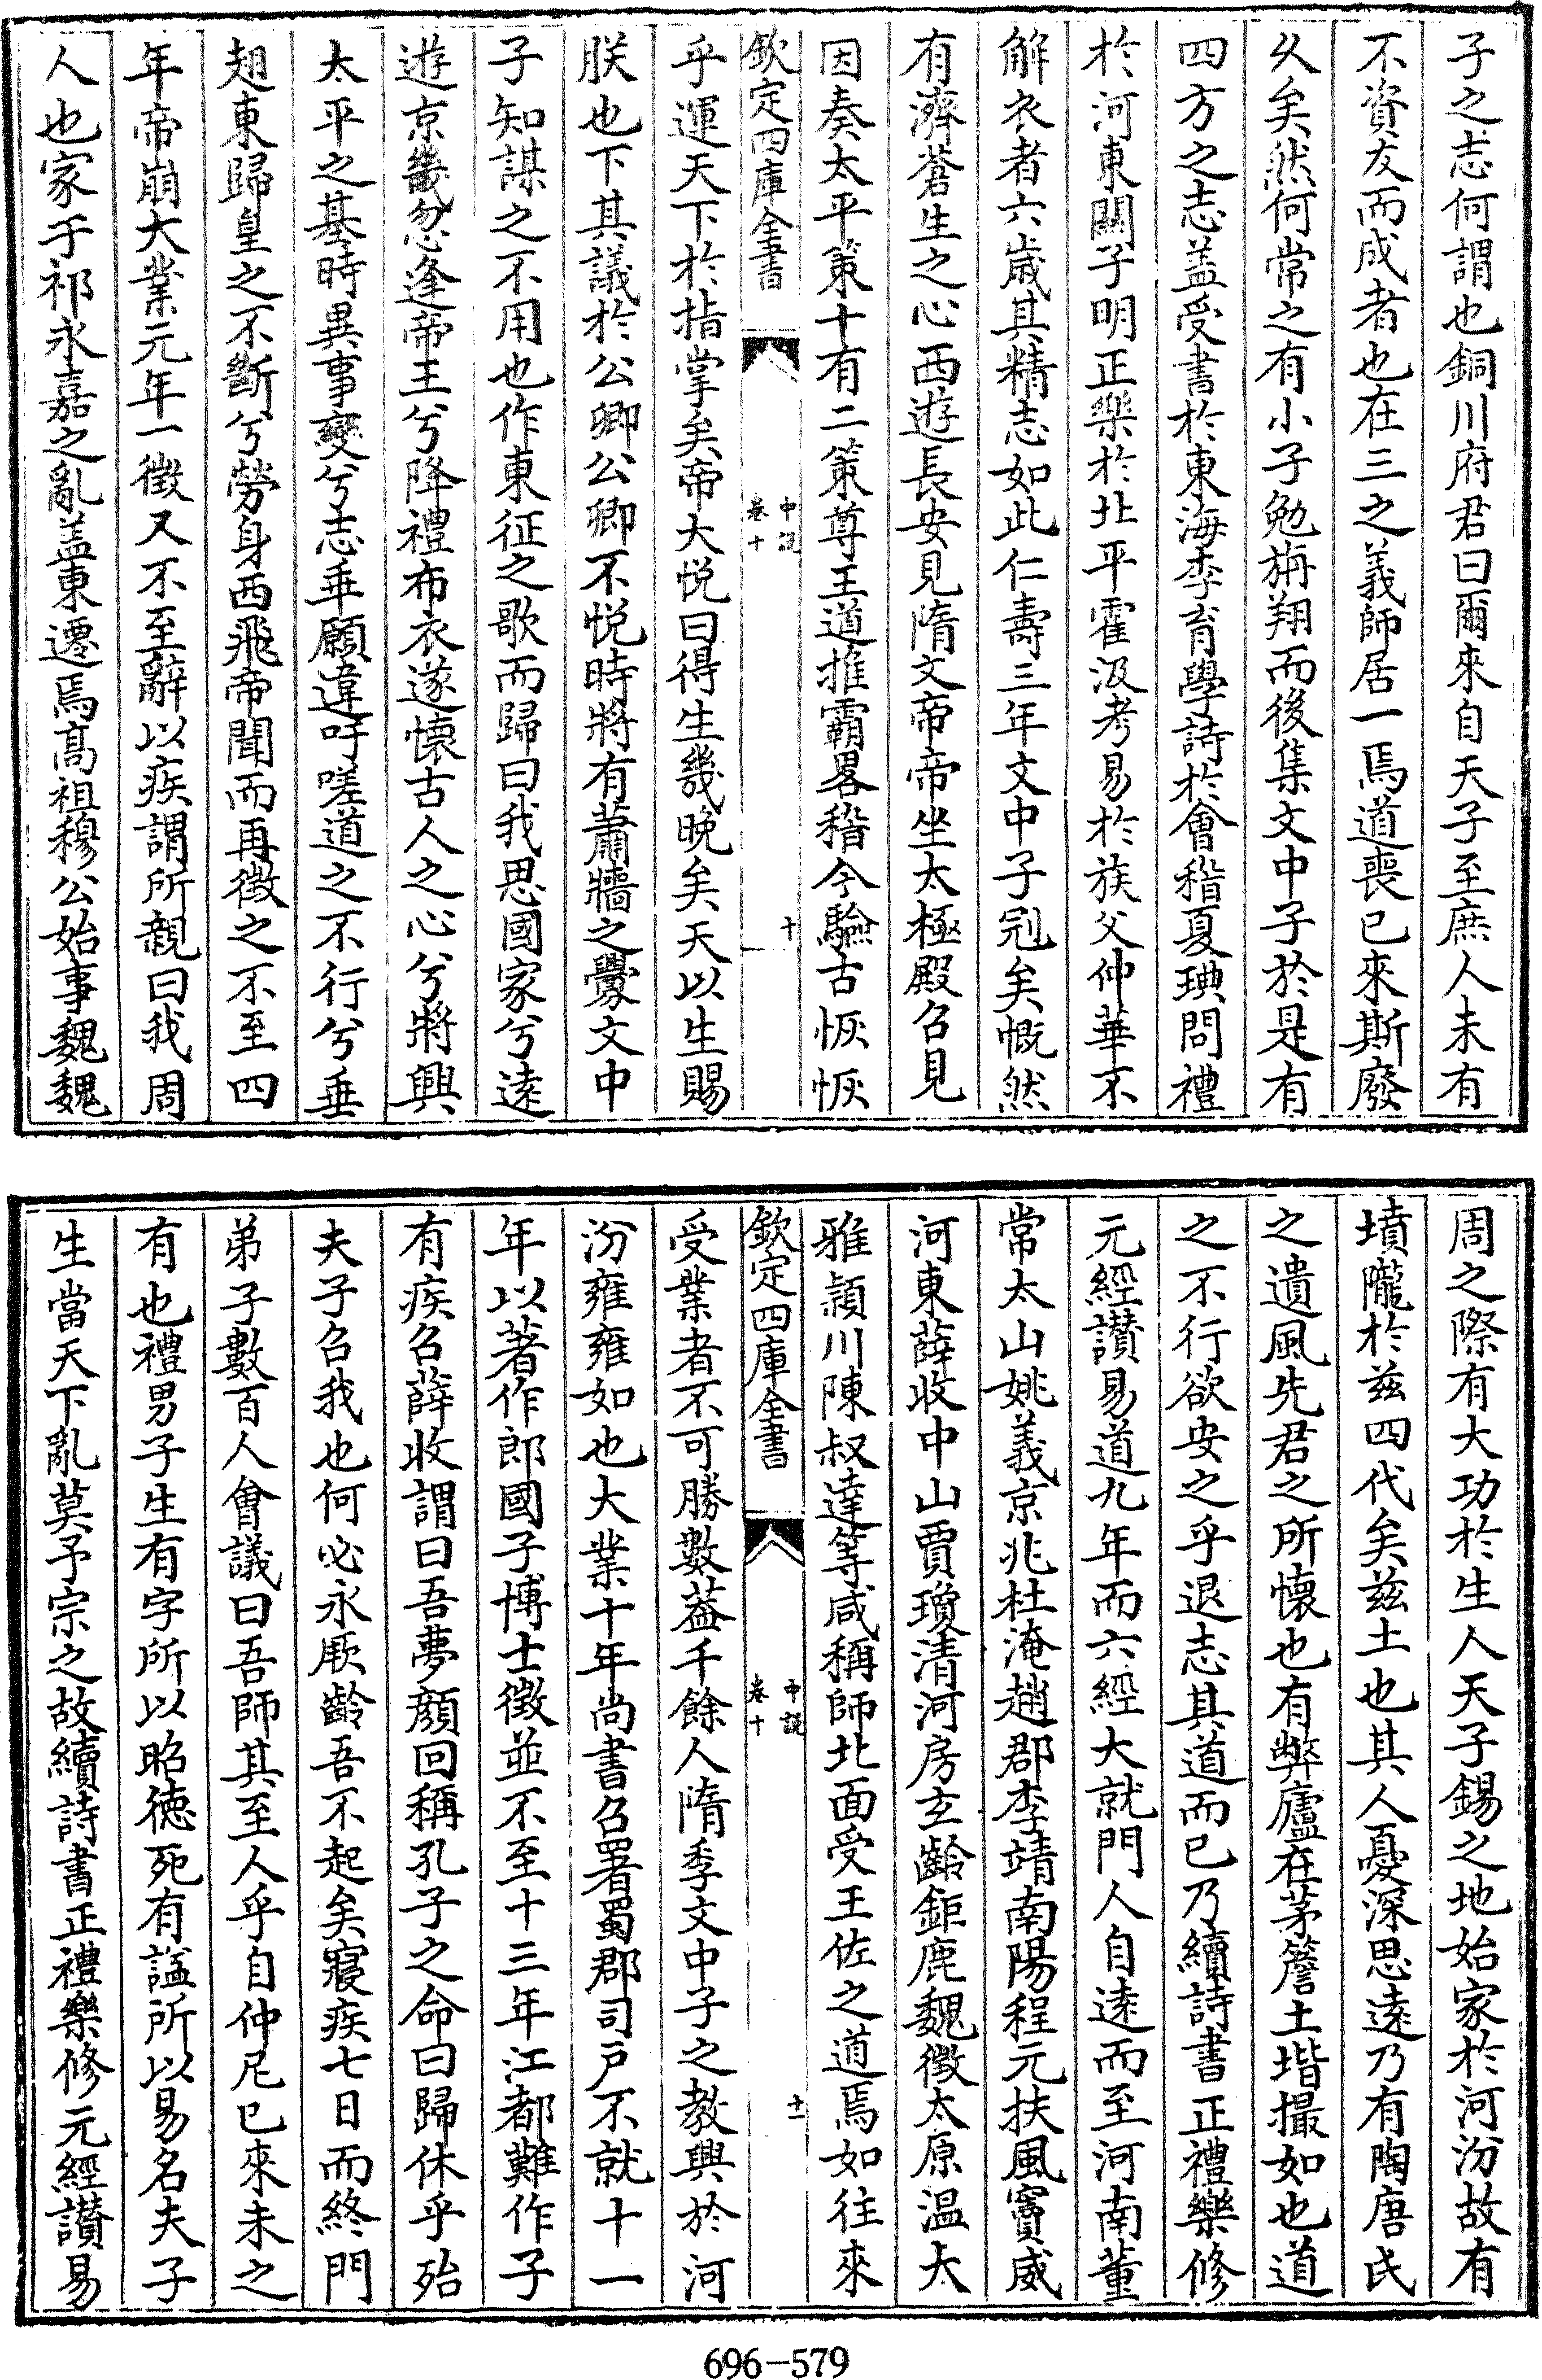 子之志何謂也銅川府君曰爾來自天子至庶人未有
不資友而成者也在三之義師居一焉道喪已來斯廢
乆矣然何常之有小子勉旃翔而後集文中子於是有
四方之志葢受書於東海李育學詩於會稽夏琠問禮
於河東關子明正樂於北平霍汲考易於族父仲華不
解衣者六歳其精志如此仁壽三年文中子冠矣慨然
有濟蒼生之心西遊長安見隋文帝帝坐太極殿召見
因奏太平策十有二策尊王道推霸畧稽今驗古恢恢
欽定四庫全書
中説
卷十
十
乎運天下於指掌矣帝大悦曰得生幾晩矣天以生賜
朕也下其議於公卿公卿不悦時將有蕭牆之釁文中
子知謀之不用也作東征之歌而歸曰我思國家兮逺
遊京畿忽逢帝王兮降禮布衣遂懐古人之心兮將興
太平之基時異事變兮志乖願違吁嗟道之不行兮垂
翅東歸皇之不斷兮勞身西飛帝聞而再徴之不至四
年帝崩大業元年一徴又不至辭以疾謂所親曰我周
人也家于祁永嘉之亂葢東遷焉髙祖穆公始事魏魏
周之際有大功於生人天子錫之地始家於河汾故有
墳隴於兹四代矣兹土也其人憂深思逺乃有陶唐氏
之遺風先君之所懐也有弊廬在茅簷土堦撮如也道
之不行欲安之乎退志其道而已乃續詩書正禮樂修
元經讃易道九年而六經大就門人自逺而至河南董
常太山姚義京兆杜淹趙郡李靖南陽程元扶風竇威
河東薛收中山賈瓊清河房玄齡鉅鹿魏徴太原温大
雅頴川陳叔達等咸稱師北面受王佐之道焉如往來
欽定四庫全書
中説
卷十
十一
受業者不可勝數葢千餘人隋季文中子之教興於河
汾雍雍如也大業十年尚書召署蜀郡司戸不就十一
年以著作郎國子博士徴並不至十三年江都難作子
有疾召薛收謂曰吾夢顔回稱孔子之命曰歸休乎殆
夫子召我也何必永厥齡吾不起矣寢疾七日而終門
弟子數百人會議曰吾師其至人乎自仲尼已來未之
有也禮男子生有字所以昭徳死有諡所以易名夫子
生當天下亂莫予宗之故續詩書正禮樂修元經讃易
696-579